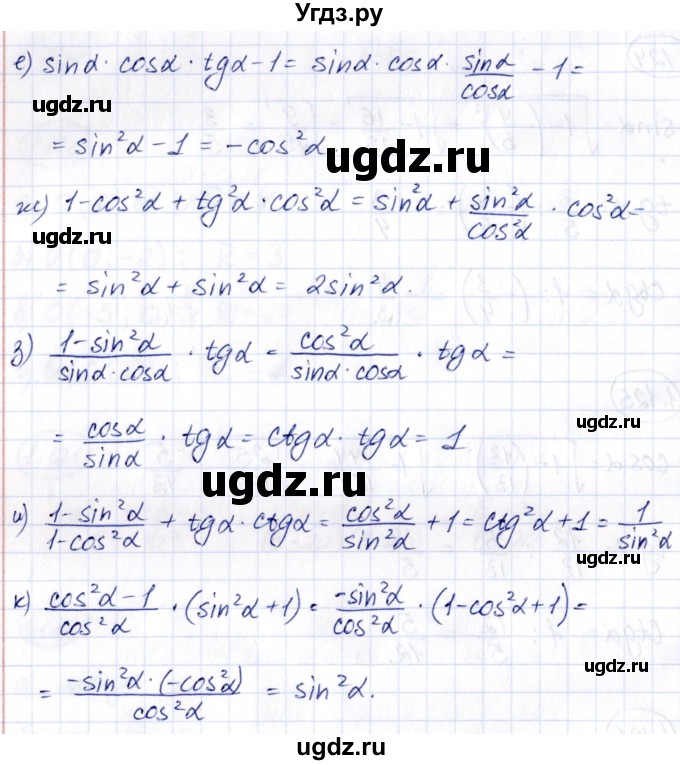 Угдз.ру
е) sinα · cosα · tgα - 1 = sinα · cosα · sinα/cosα - 1 =
ugdz.ru
ugdz.ru
= sin²α - 1 = -cos²α
ugdz.ru
ж) 1 - cos²α + tg²α · cos²α = sin²α + sin²α/cos²α · cos²α =
ugdz.ru
= sin²α + sin²α = 2sin²α.
ugdz.ru
з) (1 - sin²α)/(sinα · cosα) · tgα = cos²α/(sinα · cosα) · tgα =
ugdz.ru
ugdz.ru
= cosα/sinα · tgα = ctgα · tgα = 1
ugdz.ru
и) (1 - sin²α)/(1 - cos²α) + tgα · ctgα = cos²α/sin²α + 1 = ctg²α + 1 = 1/sin²α
ugdz.ru
ugdz.ru
к) (cos²α - 1)/cos²α · (sin²α + 1) = -sin²α/cos²α · (1 - cos²α + 1) =
ugdz.ru
= -sin²α · (-cos²α)/cos²α = sin²α.
ugdz.ru
ugdz.ru